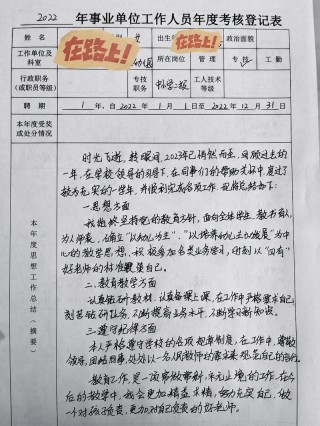 2022 年事业单位工作人员年度考核登记表
姓名 在路上! 出生年 在路上! 政治面貌
工作单位及科室 幼儿园 所在岗位 管理 专技✓ 工勤
行政职务(或职员等级) 专技职务 中小学二级 工人技术等级
聘期 1 年,自 2022 年 1 月 1 日至 2022 年 12 月 31 日
本年度受奖或处分情况
本年度思想工作总结(摘要)
时光飞逝,转眼间,2023年已悄然而至,回顾过去的
一年,在学校领导的引导下,在同事们的帮助支持中,度过了
较为充实的一学年,并顺利完成各项工作,现总结如下:
一.思想方面
我始终坚持党的教育方针,面向全体学生,教书育人,
为人师表,确立"以幼儿为主","以培养幼儿主动发展"为中
心的教学思想,积极参加各类业务学习,时刻以"四有"
好老师的标准要求自己。
二.教育教学方面
认真钻研教材,认真备课上课,在工作中严格要求自己,
刻苦钻研业务,不断提高业务水平,不断学习新知识。
三.遵守纪律方面
本人严格遵守学校的各项规章制度,在工作中,尊敬
领导,团结同事,处处以一名人民教师的要求来规范自己的言行。
教育工作,是一项常做常新、永无止境的工作,在今
后的教学中,我会更加精益求精,努力完善自己,做
一个对孩子负责,更加对自己负责的好老师。